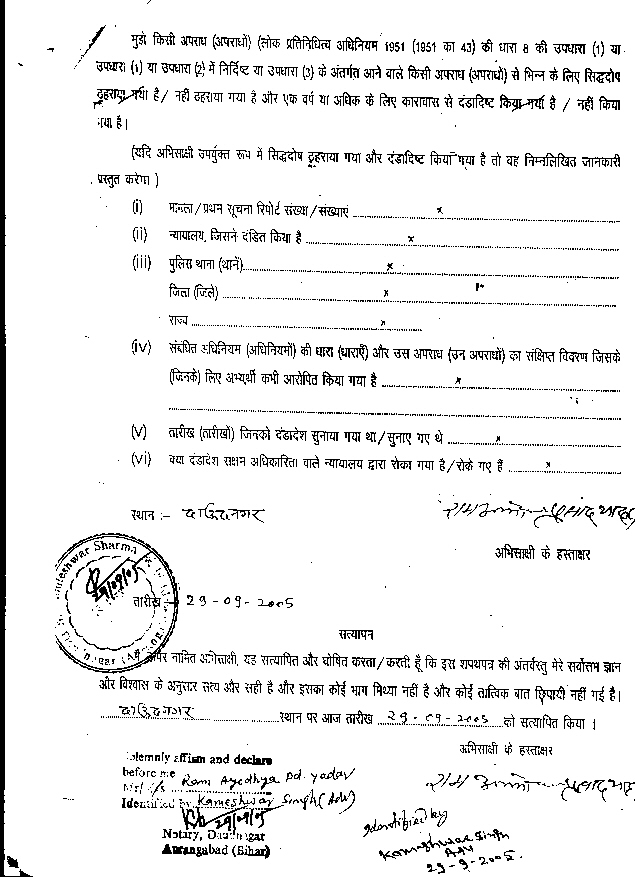 मुझे किसी अपराध (अपराधों) (लोक प्रतिनिधित्व अधिनियम 1951 (1951 का 43) की धारा 8 की उपधारा (1) या
उपधारा (1) या उपधारा (2) में निर्दिष्ट या उपधारा (3) के अंतर्गत आने वाले किसी अपराध (अपराधों) से भिन्न के लिए सिद्धदोष
ठहराया गया है / नहीं ठहराया गया है और एक वर्ष या अधिक के लिए कारावास से दंडादिष्ट किया गया है / नहीं किया
गया है।
(यदि अभिसाक्षी उपर्युक्त रूप में सिद्धदोष ठहराया गया और दंडादिष्ट किया गया है तो वह निम्नलिखित जानकारी
प्रस्तुत करेगा )
(i) मामला/प्रथम सूचना रिपोर्ट संख्या/संख्याएं ........ x
(ii) न्यायालय, जिसने दंडित किया है ........ x
(iii) पुलिस थाना (थाने)........ x
जिला (जिले) ........ x
राज्य ........ x
(iv) संबंधित अधिनियम (अधिनियमों) की धारा (धाराएँ) और उस अपराध (उन अपराधों) का संक्षिप्त विवरण जिसके
(जिनके) लिए अभ्यर्थी कभी आरोपित किया गया है ........ x
(v) तारीख (तारीखों) जिनको दंडादेश सुनाया गया था/सुनाए गए थे ........ x
(vi) क्या दंडादेश सक्षम अधिकारिता वाले न्यायालय द्वारा रोका गया है/रोके गए हैं ........ x
स्थान :- दाउदनगर
अभिसाक्षी के हस्ताक्षर
Sharma
29/09/05
तारीख :- 29-09-2005
सत्यापन
ऊपर नामित अभिसाक्षी, यह सत्यापित और घोषित करता/करती हूँ कि इस शपथपत्र की अंतर्वस्तु मेरे सर्वोत्तम ज्ञान
और विश्वास के अनुसार सत्य और सही है और इसका कोई भाग मिथ्या नहीं है और कोई तात्विक बात छिपायी नहीं गई है।
दाउदनगर ........ स्थान पर आज तारीख 29-09-2005 को सत्यापित किया ।
अभिसाक्षी के हस्ताक्षर
Solemnly affism and declare
before me Ram Ayodhya Pd. yadav
Identified by Kameshwar Singh (Adv)
29/09/05
Notary, Daudnagar
Aurangabad (Bihar)
Identified by
Kameshwar Singh
Adv
29-9-2005.